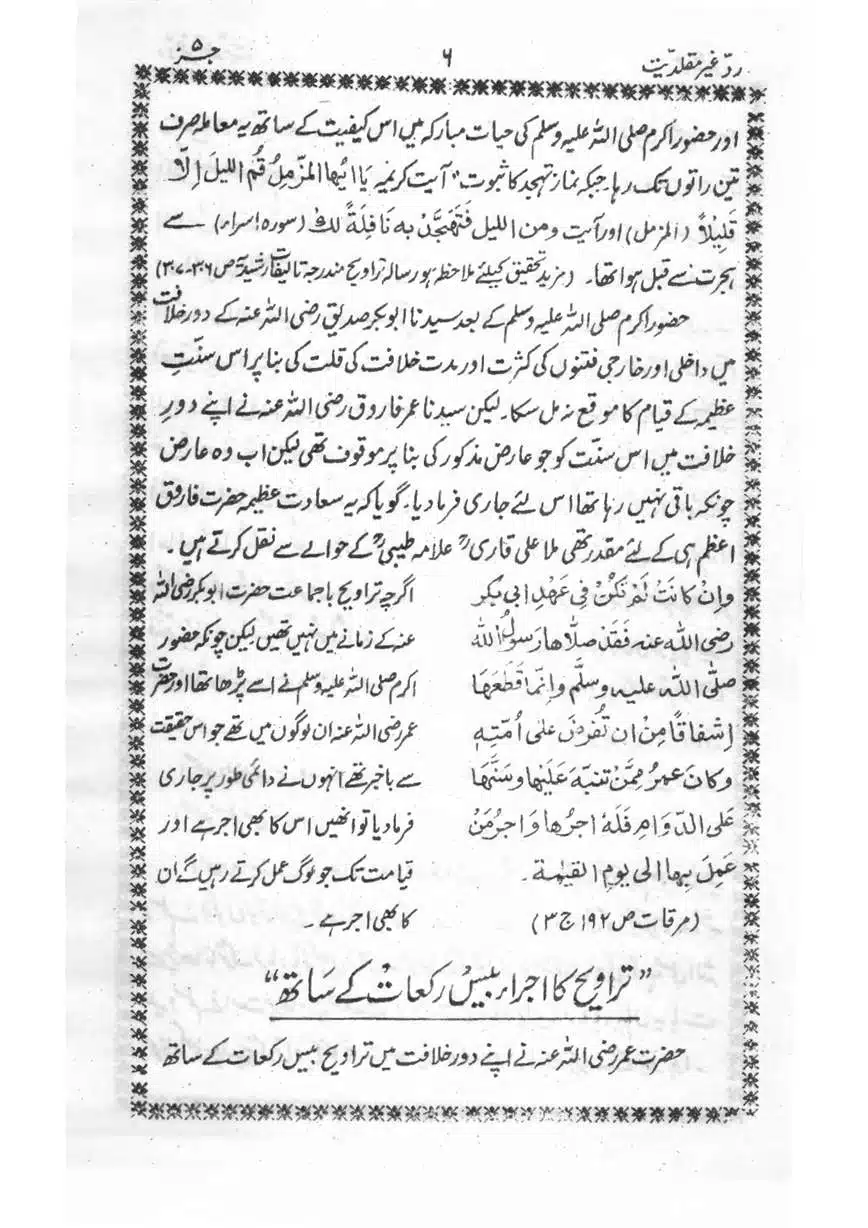 ردّ غیر مقلدیت ۶ جز ۵
اور حضور اکرم صلی اللہ علیہ وسلم کی حیات مبارکہ میں اس کیفیت کے ساتھ یہ معاملہ صرف
تین راتوں تک رہا۔ جبکہ نماز تہجد کا ثبوت "آیت کریمہ یَا ایُّھَا المزّمِلُ قُمِ اللیلَ اِلَّا
قَلِیْلاً (المزمل) اور آیت ومن اللیل فَتَھَجَّدْ بِه نَافِلَةً لكَ (سورہ اسراء) سے
ہجرت سے قبل ہوا تھا۔ (مزید تحقیق کیلئے ملاحظہ ہو رسالہ تراویح مندرجہ تالیفات رشیدیہ ص ۳۰۶-۳۰۷)
حضور اکرم صلی اللہ علیہ وسلم کے بعد سیدنا ابوبکر صدیق رضی اللہ عنہ کے دور خلافت
میں داخلی اور خارجی فتنوں کی کثرت اور مدت خلافت کی قلت کی بنا پر اس سنّتِ
عظیمہ کے قیام کا موقع نہ مل سکا۔ لیکن سیدنا عمر فاروق رضی اللہ عنہ نے اپنے دورِ
خلافت میں اس سنت کو جو عارض مذکور کی بنا پر موقوف تھی لیکن اب وہ عارض
چونکہ باقی نہیں رہا تھا اس لئے جاری فرما دیا۔ گویا کہ یہ سعادت عظیمہ حضرت فاروق
اعظم ہی کے لئے مقدر تھی ملا علی قاریؒ علامہ طیبیؒ کے حوالے سے نقل کرتے ہیں۔
وَاِنْ کَانَتْ لَمْ تَکُنْ فِی عَھْدِ ابی بکر
رضی اللہ عنہ فَقَدْ صلَّاھا رَسولُ اللہ
صلَّی اللہ علیہ وسلَّم وَاِنّما قَطَعَھَا
اِشفاقًا مِنْ ان تُفرضَ علی اُمّتِہٖ
وکانَ عمرُ مِمَّنْ تنبّه عَلَیْھا وسَنَّھَا
عَلی الدّوامِ فَلَهٗ اجرُھا وَاجرُمَنْ
عَمِلَ بِھا الی یومِ القیٰمة۔
(مرقات ص ۱۹۲ ج ۳)
اگرچہ تراویح باجماعت حضرت ابوبکر رضی اللہ
عنہ کے زمانے میں نہیں تھیں لیکن چونکہ حضور
اکرم صلی اللہ علیہ وسلم نے اسے پڑھا تھا اور حضرت
عمر رضی اللہ عنہ ان لوگوں میں تھے جو اس حقیقت
سے باخبر تھے انہوں نے دائمی طور پر جاری
فرما دیا تو انھیں اس کا بھی اجر ہے اور
قیامت تک جو لوگ عمل کرتے رہیں گے ان
کا بھی اجر ہے۔
"تراویح کا اجراء بیس رکعات کے ساتھ"
حضرت عمر رضی اللہ عنہ نے اپنے دور خلافت میں تراویح بیس رکعات کے ساتھ